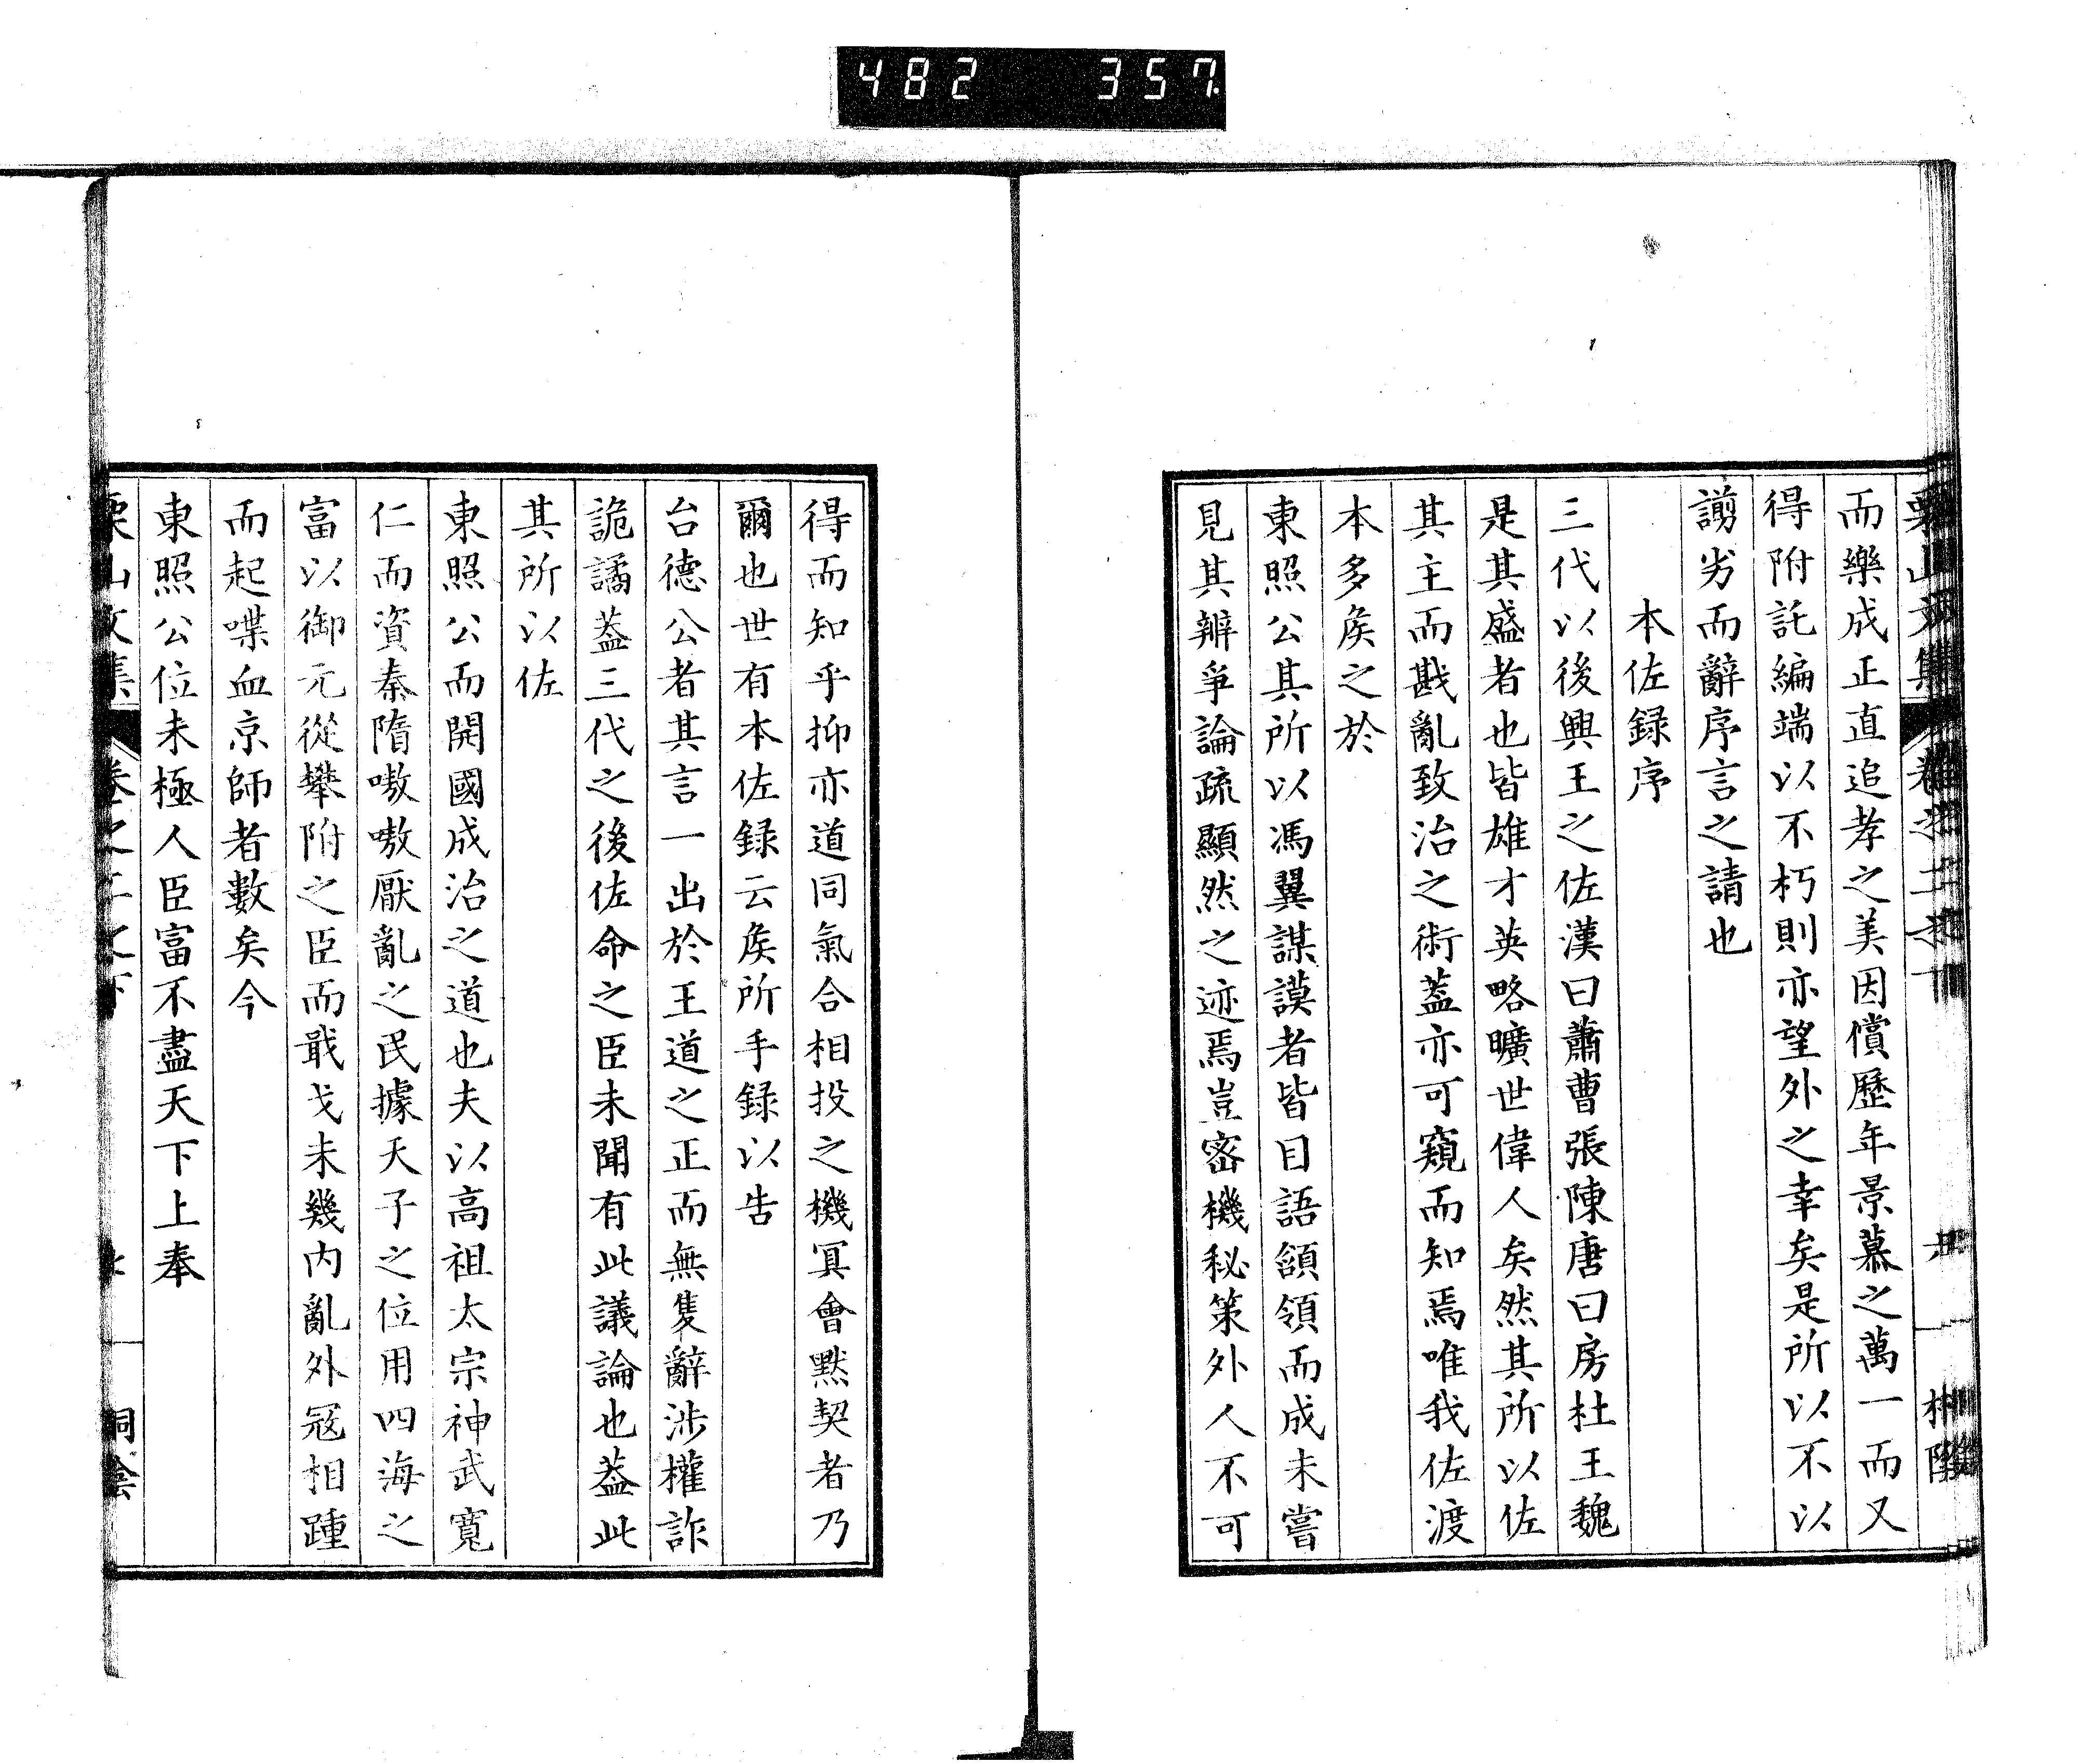 482 357
而樂成正直追孝之美因償歷年景慕之萬一而又
得附託編端以不朽則亦望外之幸矣是所以不以
謭劣而辭序言之請也
本佐録序
三代以後興王之佐漢曰蕭曹張陳唐曰房杜王魏
是其盛者也皆雄才英略曠世偉人矣然其所以佐
其主而戡亂致治之術蓋亦可窺而知焉唯我佐渡
本多矦之於
東照公其所以馮翼謀謨者皆目語頷領而成未嘗
見其辨爭論疏顯然之迹焉豈密機秘策外人不可
得而知乎抑亦道同氣合相投之機冥會默契者乃
爾也世有本佐録云矦所手録以告
台德公者其言一出於王道之正而無隻辭涉權詐
詭譎葢三代之後佐命之臣未聞有此議論也葢此
其所以佐
東照公而開國成治之道也夫以高祖太宗神武寬
仁而資秦隋嗷嗷厭亂之民據天子之位用四海之
富以御元從攀附之臣而戢戈未幾内亂外冦相踵
而起喋血京師者數矣今
東照公位未極人臣富不盡天下上奉